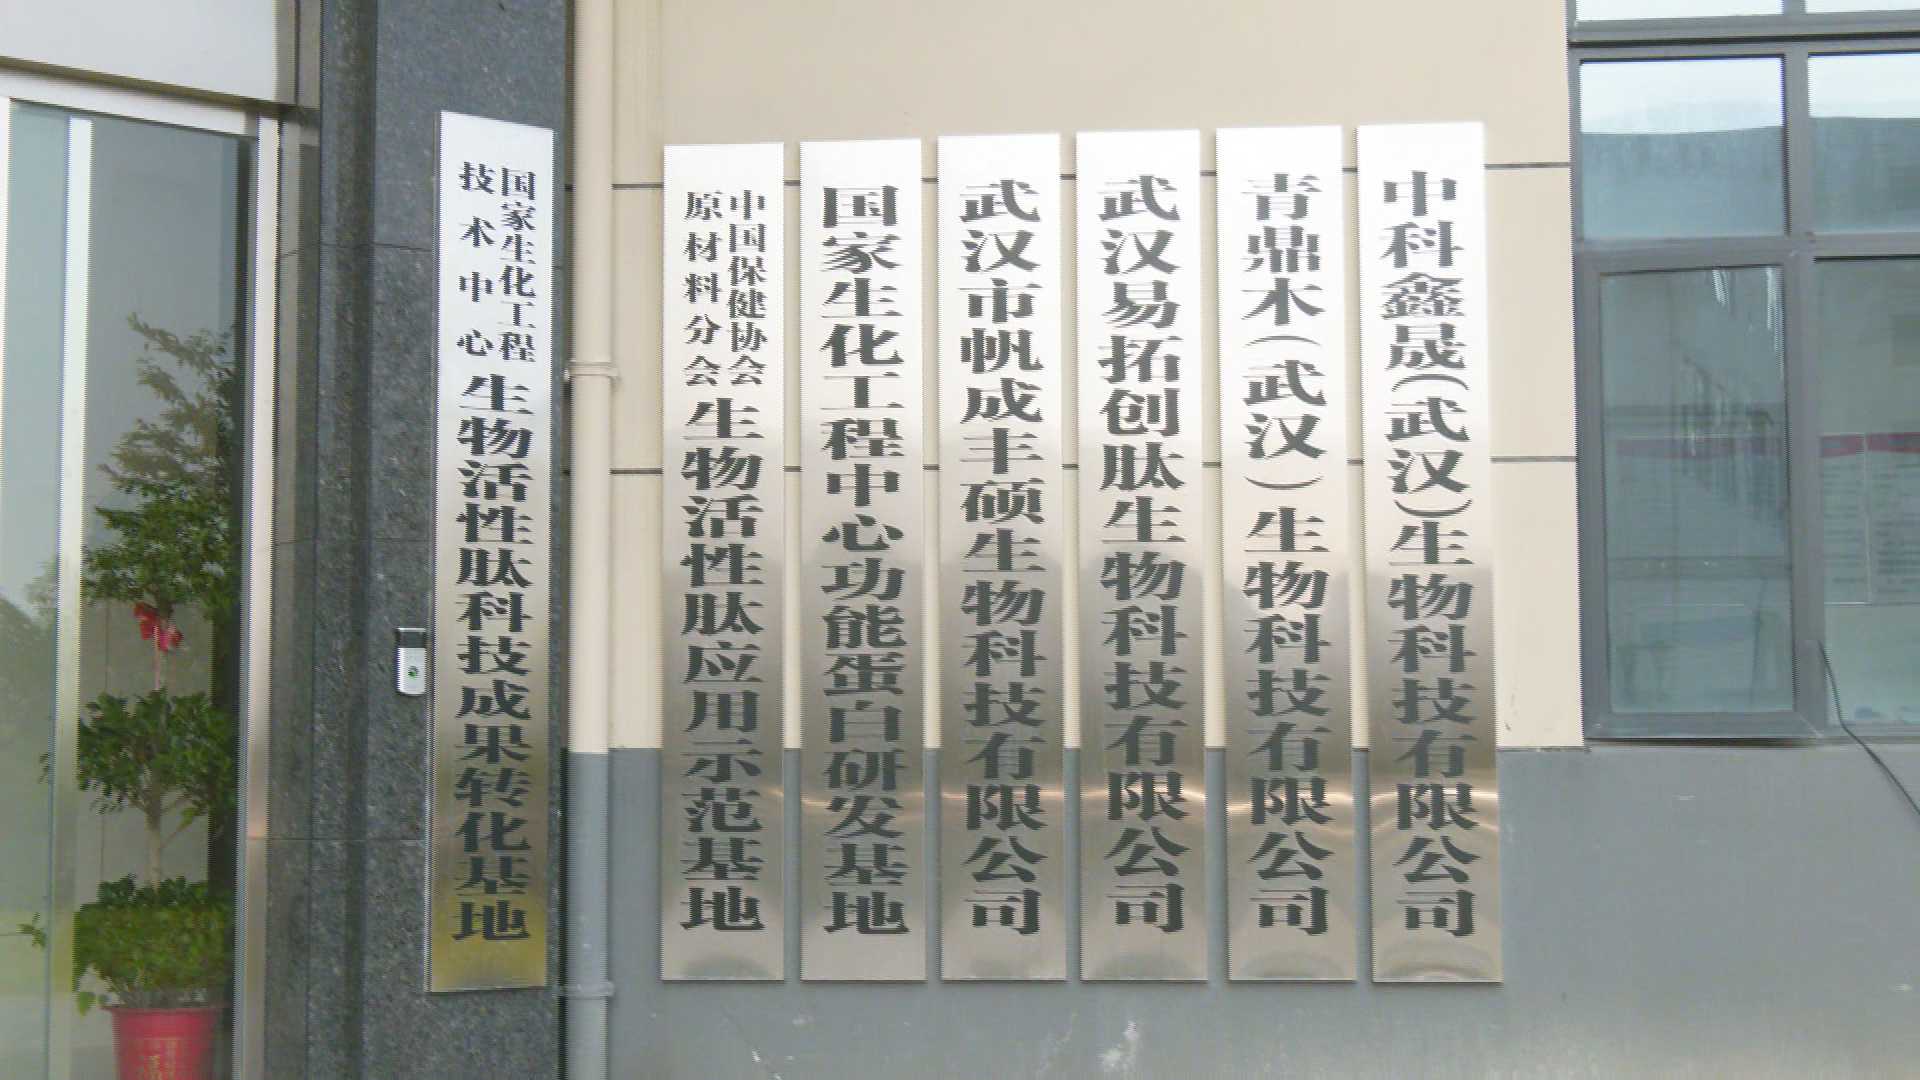 国家生化工程
技术中心
生物活性肽科技成果转化基地
中国保健协会
原材料分会
生物活性肽应用示范基地
国家生化工程中心功能蛋白研发基地
武汉市帆成丰硕生物科技有限公司
武汉易拓创肽生物科技有限公司
青鼎木(武汉)生物科技有限公司
中科鑫晟(武汉)生物科技有限公司